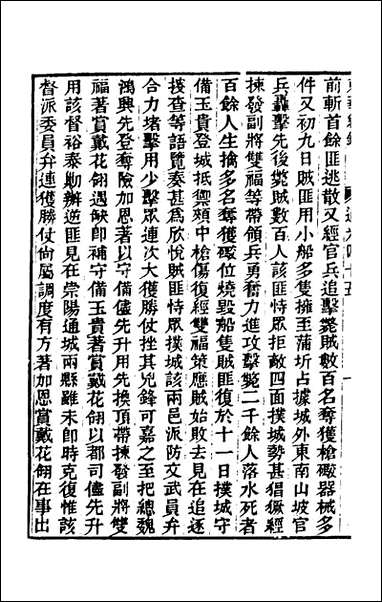 前斬首餘匪逃散又經官兵追擊斃賊數百名奪獲槍礮器械多
件又初九日賊匪用小船多隻擁至蒲圻占據城外東南山坡官
兵轟擊先後斃賊數百人該匪恃眾拒敵四面撲城勢甚猖獗經
揀發副將雙福等帶領兵勇奮力進攻擊斃二千餘人落水死者
百餘人生擒多名奪獲礮位燒毀船隻賊匪復於十一日撲城守
備玉貴登城抵禦頰中槍傷復經雙福策應賊始敗去見在追逐
搜查等語覽奏甚為欣悅賊匪恃眾撲城該兩邑派防文武員弁
合力堵擊用少擊眾連次大獲勝仗挫其兇鋒可嘉之至把總魏
鴻興先登奪險加恩著以守備儘先升用先換頂帶揀發副將雙
福著賞戴花翎遇缺卽補守備玉貴著賞戴花翎以都司儘先升
用該督裕泰勦辦逆匪見在崇陽通城兩縣雖未卽時克復惟該
督派委員弁連獲勝仗尚屬調度有方著加恩賞戴花翎在事出